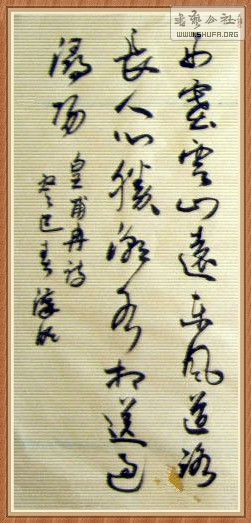 書藝公社
WWW.SHUFA.ORG
西塞雲山遠东风道路
長人心勝潮水相送過
潯陽
皇甫冉詩
癸巳春